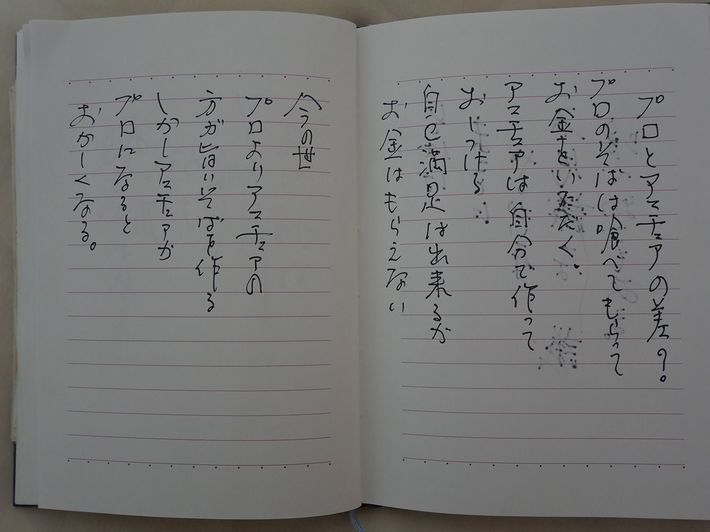 プロとアマチュアの差の。
プロのそばは喰べてもらって
お金をいただく。
アマチュアは自分で作って
おしつける
自己満足は出来るが
お金はもらえない
今の世
プロよりアマチュアの
方が旨いそばを作る
しかしアマチュアが
プロになると
おかしくなる。